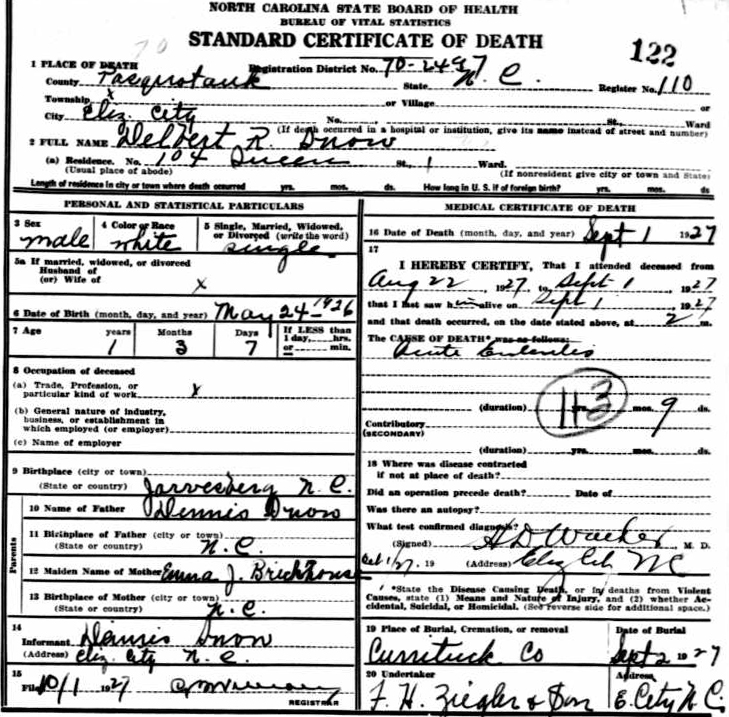 NORTH CAROLINA STATE BOARD OF HEALTH
BUREAU OF VITAL STATISTICS
STANDARD CERTIFICATE OF DEATH
122
1 PLACE OF DEATH Registration District No. 70-2497
County Pasquotank State N.C. Register No. 110
Township x or Village or
City Eliz. City No. St., Ward
(If death occurred in a hospital or institution, give its name instead of street and number)
2 FULL NAME Delbert R. Snow
(a) Residence. No. 104 Queen St., 1 Ward.
(Usual place of abode) (If nonresident give city or town and State)
Length of residence in city or town where death occurred yrs. mos. ds. How long in U. S. if of foreign birth? yrs. mos. ds.
PERSONAL AND STATISTICAL PARTICULARS
3 Sex male
4 Color or Race white
5 Single, Married, Widowed, or Divorced (write the word) single
5a If married, widowed, or divorced
Husband of
(or) Wife of x
6 Date of Birth (month, day, and year) May 24-1926
7 Age years Months Days If LESS than
1 3 7 1 day, hrs.
or min.
8 Occupation of deceased
(a) Trade, Profession, or
particular kind of work x
(b) General nature of industry,
business, or establishment in
which employed (or employer)
(c) Name of employer
9 Birthplace (city or town)
(State or country) Jarvesberg N.C.
Parents
10 Name of Father Dennis Snow
11 Birthplace of Father (city or town)
(State or country) N.C.
12 Maiden Name of Mother Emma J. Brickhouse
13 Birthplace of Mother (city or town)
(State or country) N.C.
14
Informant Dennis Snow
(Address) Eliz. City N.C.
15
Filed 10/1 1927
REGISTRAR
MEDICAL CERTIFICATE OF DEATH
16 Date of Death (month, day, and year) Sept 1 1927
17
I HEREBY CERTIFY, That I attended deceased from
Aug 22, 1927 to Sept 1, 1927
that I last saw him alive on Sept 1, 1927
and that death occurred, on the date stated above, at 2 m.
The CAUSE OF DEATH* was as follows:
Acute
(duration) yrs. mos. 9 ds.
113
Contributory
(SECONDARY)
(duration) yrs. mos. ds.
18 Where was disease contracted
if not at place of death?
Did an operation precede death? Date of
Was there an autopsy?
What test confirmed diagnosis?
(Signed) A D Walker M. D.
, 19 (Address) Eliz City NC
*State the Disease Causing Death, or in deaths from Violent
Causes, state (1) Means and Nature of Injury, and (2) whether Ac-
cidental, Suicidal, or Homicidal. (See reverse side for additional space.)
19 Place of Burial, Cremation, or removal Date of Burial
Currituck Co Sept 2 1927
20 Undertaker
F. H. Ziegler & Son E. City N.C.